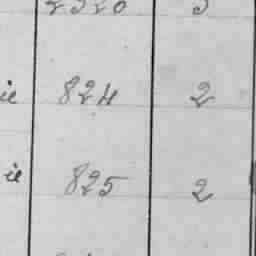 ie 824 2
ie 825 2